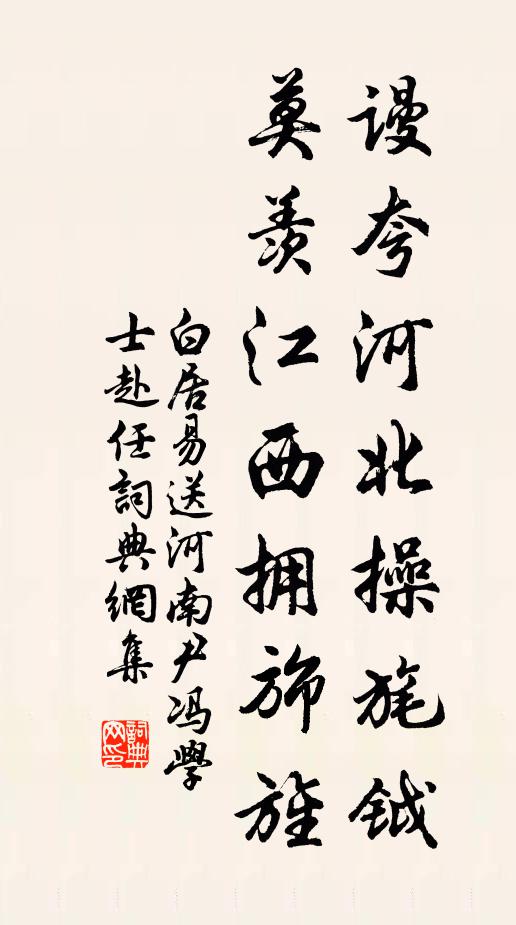 谩夸河北操旄钺
莫羡江西拥旆旌
白居易送河南尹冯學
士赴任詞典網集
詞典網印